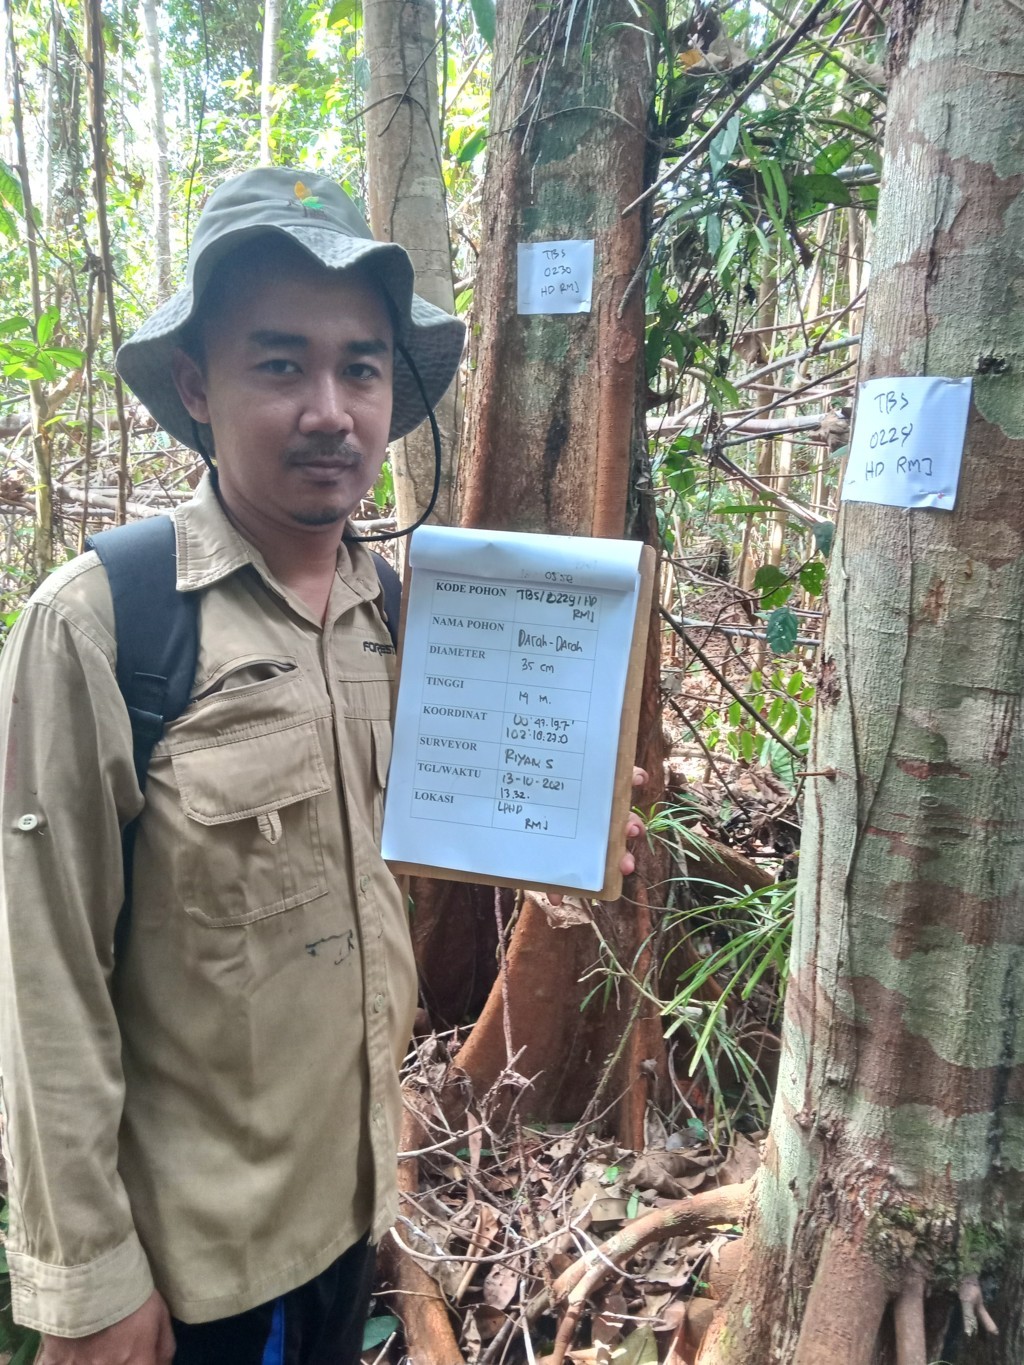 TBS
0230
HD RMJ
TBS
0229
HD RMJ
FOREST
KODE POHON TBS/0229/HD
RMJ
NAMA POHON Darah-Darah
DIAMETER 35 cm
TINGGI 19 M.
KOORDINAT 00°47.19.7"
102°10.27.0
SURVEYOR RIYAN S
TGL/WAKTU 13-10-2021
13.32.
LOKASI LPHD
RMJ